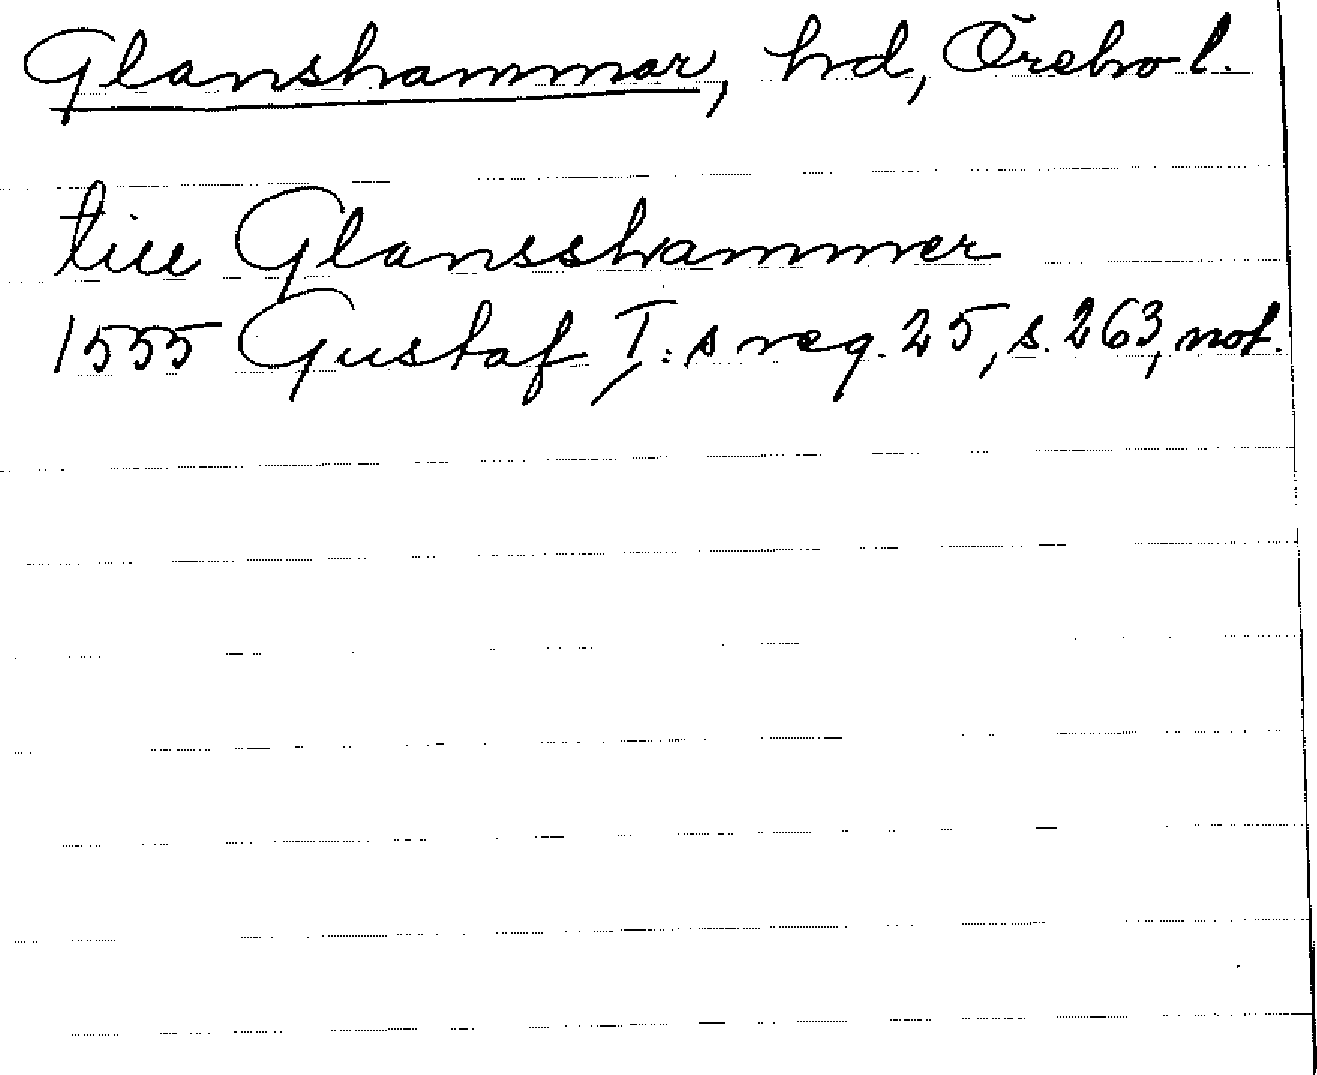 Glanshammar, hd, Örebro l.
till Glansshammer
1555 Gustaf I:s reg. 25, s. 263, not.